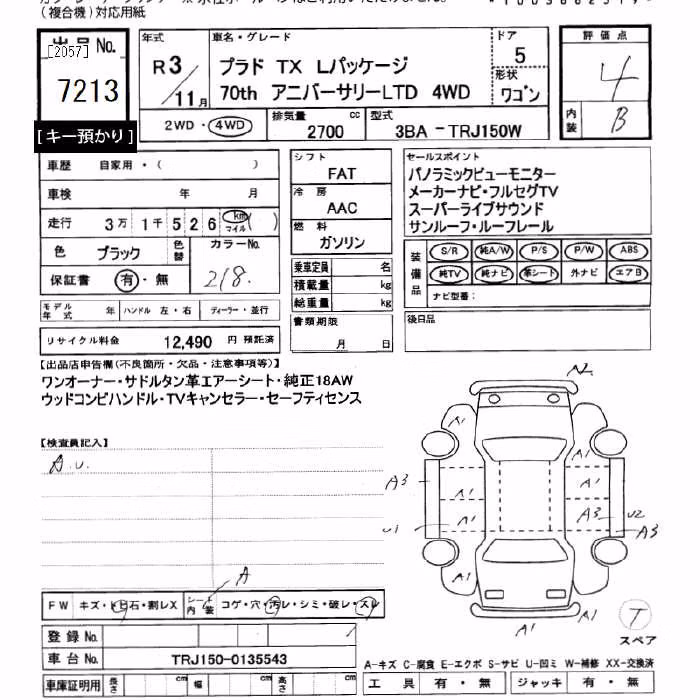 (複合機)対応用紙
出品 No.
[2057]
7213
[キー預かり]
年式
R3/11月
車名・グレード
プラド TX Lパッケージ
70th アニバーサリーLTD 4WD
ドア
5
形状
ワゴン
評価点
4
内装
B
2WD・4WD
排気量
2700 cc
型式
3BA-TRJ150W
車歴 自家用・( )
車検 年 月
走行 3万1千526 km マイル ( )
色 ブラック 色替
カラーNo.
218.
保証書 有・無
モデル年式 年 ハンドル 左・右 ディーラー・並行
リサイクル料金 12,490 円 預託済
シフト
FAT
冷房
AAC
燃料
ガソリン
乗車定員 名
積載量 kg
総重量 kg
書類期限
月 日
セールスポイント
パノラミックビューモニター
メーカーナビ・フルセグTV
スーパーライブサウンド
サンルーフ・ルーフレール
装備品
S/R 純A/W P/S P/W ABS
純TV 純ナビ 革シート 外ナビ エアB
ナビ型番:
後日品
【出品店申告欄(不良箇所・欠品・注意事項等)】
ワンオーナー・サドルタン革エアーシート・純正18AW
ウッドコンビハンドル・TVキャンセラー・セーフティセンス
【検査員記入】
A.U.
A2
A1
A1 A1
A3
A1 A1
U1 A1 A1 A3 U2
A3
A1 A1
A1
A1
T
スペア
A
FW キズ・トビ石・割レX シート内装 コゲ・穴・汚レ・シミ・破レ・スレ
登録 No.
車台 No. TRJ150-0135543
車庫証明用 長さ cm 幅 cm 高さ cm
A-キズ C-腐食 E-エクボ S-サビ U-凹ミ W-補修 XX-交換済
工具 有・無 ジャッキ 有・無